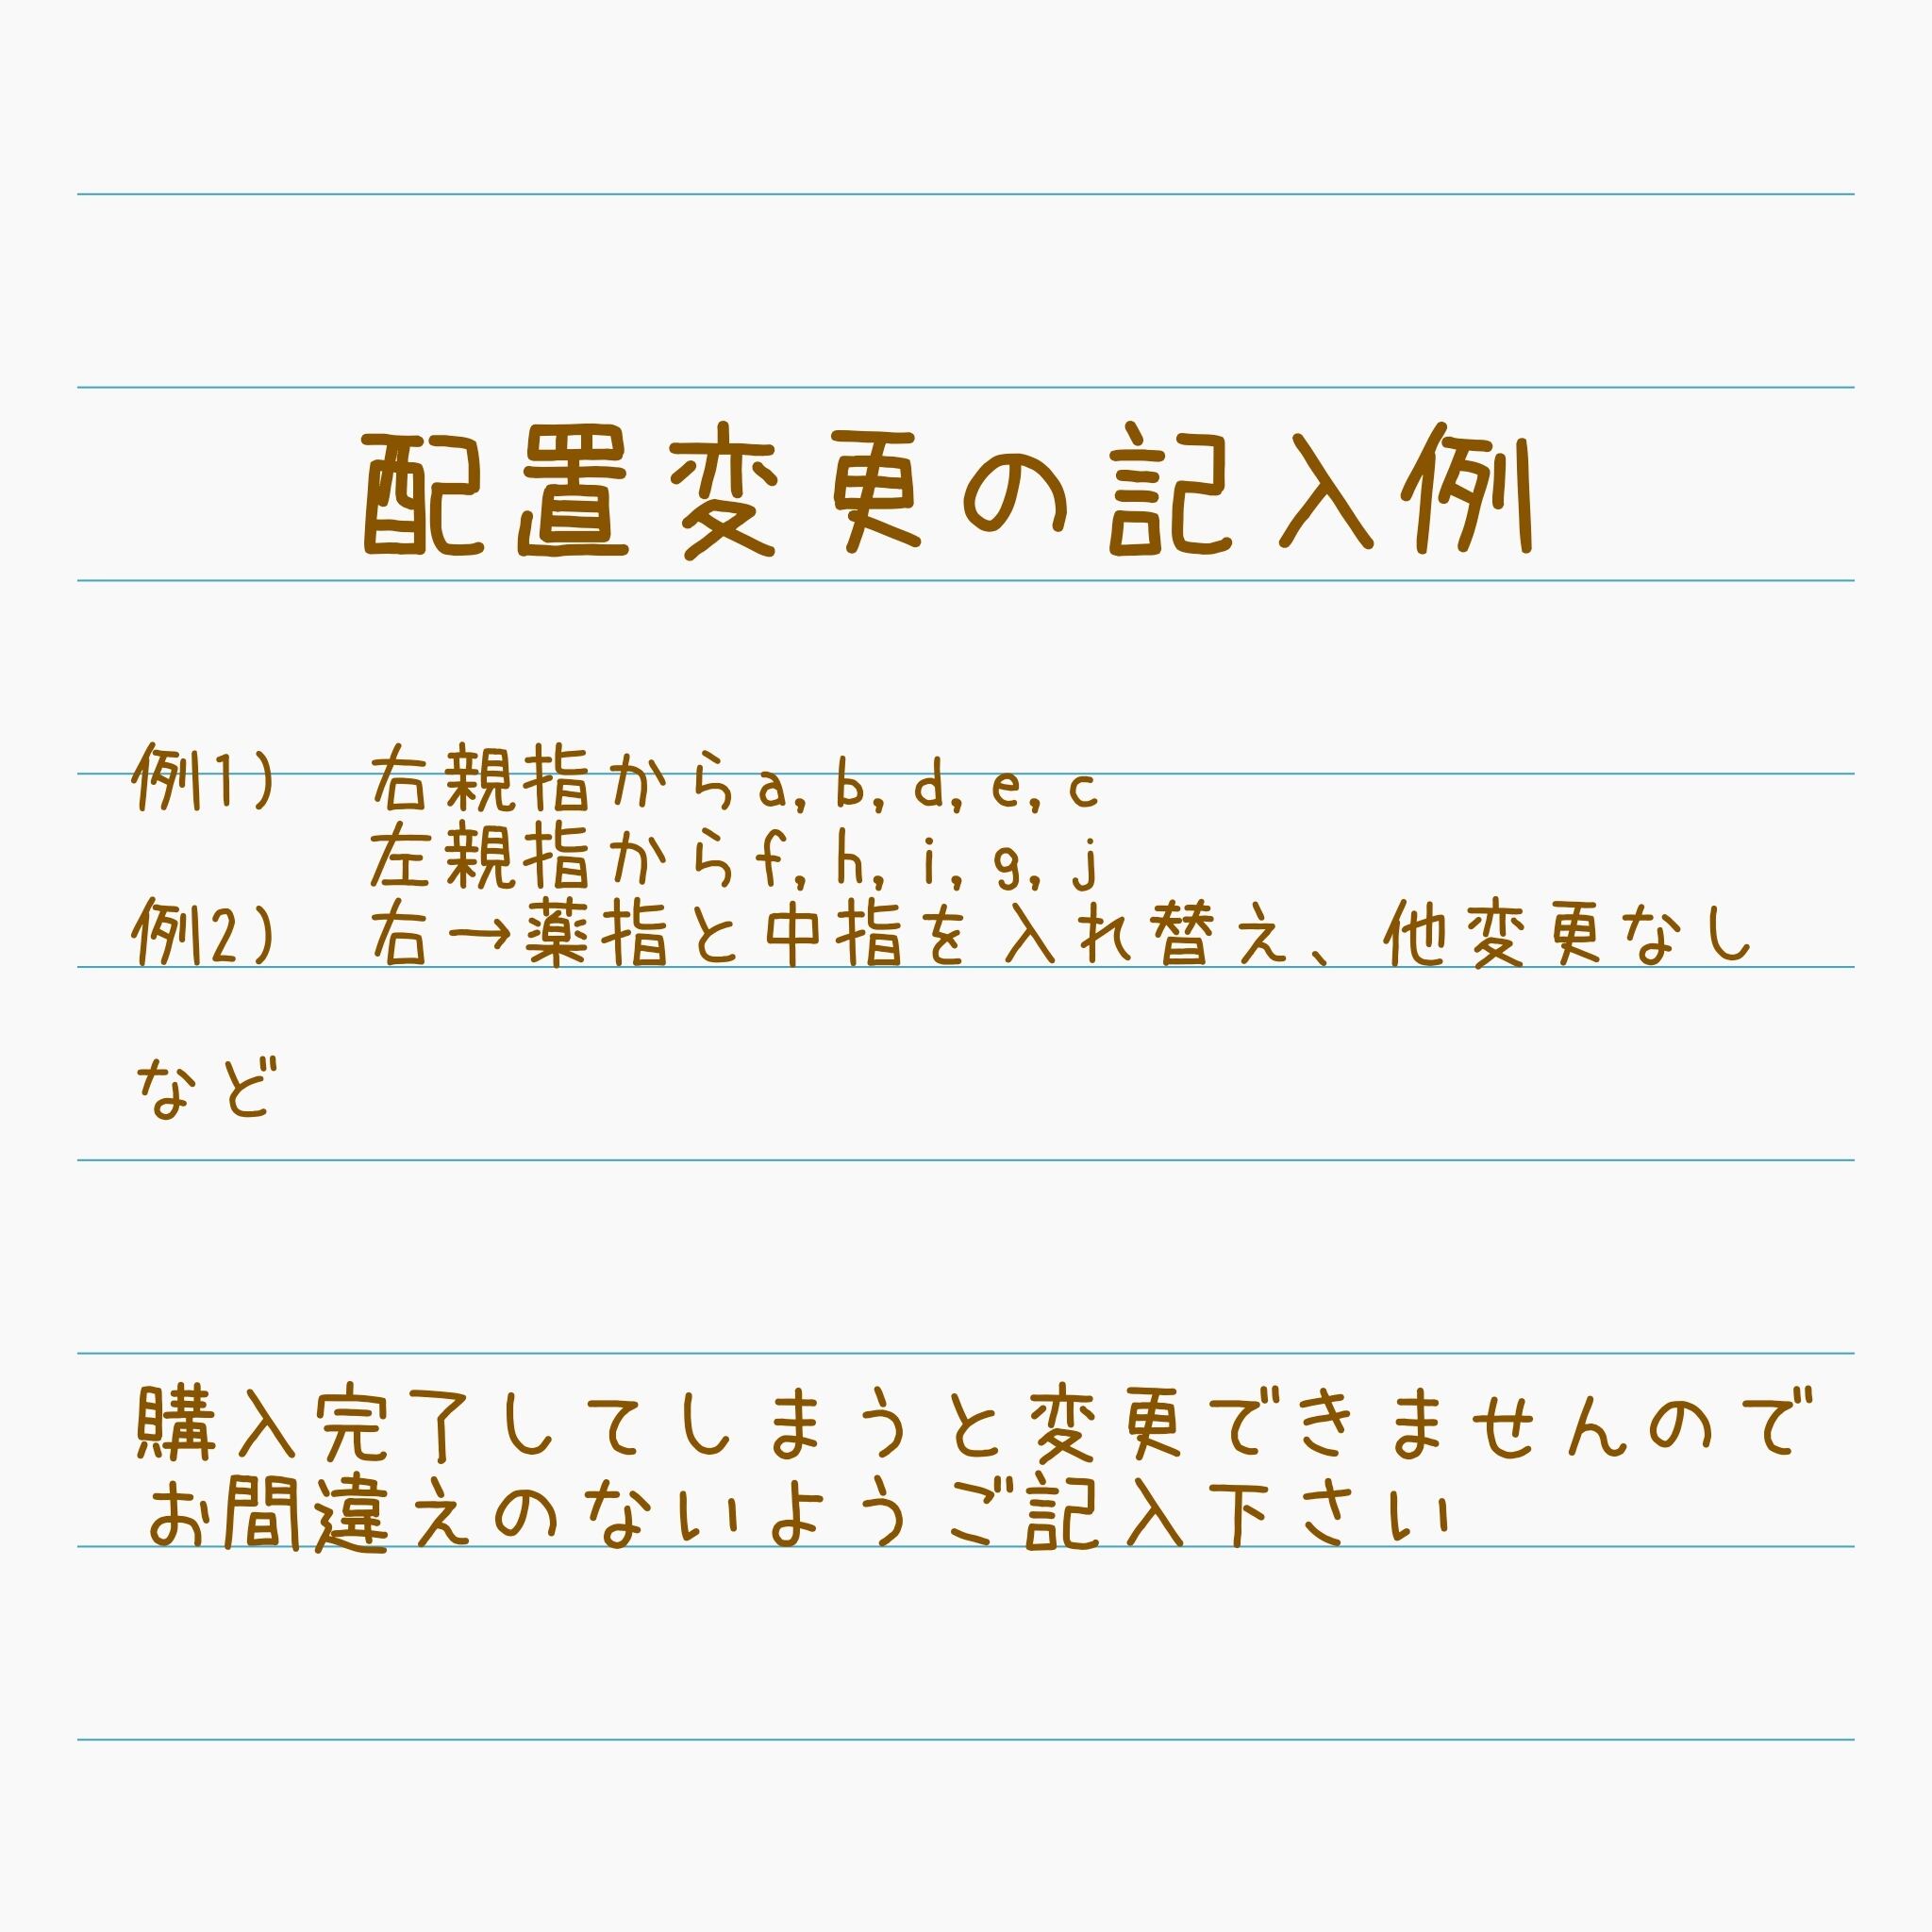 配置変更の記入例
例1) 右親指からa,b,d,e,c
左親指からf,h,i,g,j
例2) 右→薬指と中指を入れ替え、他変更なし
など
購入完了してしまうと変更できませんので
お間違えのないようご記入下さい